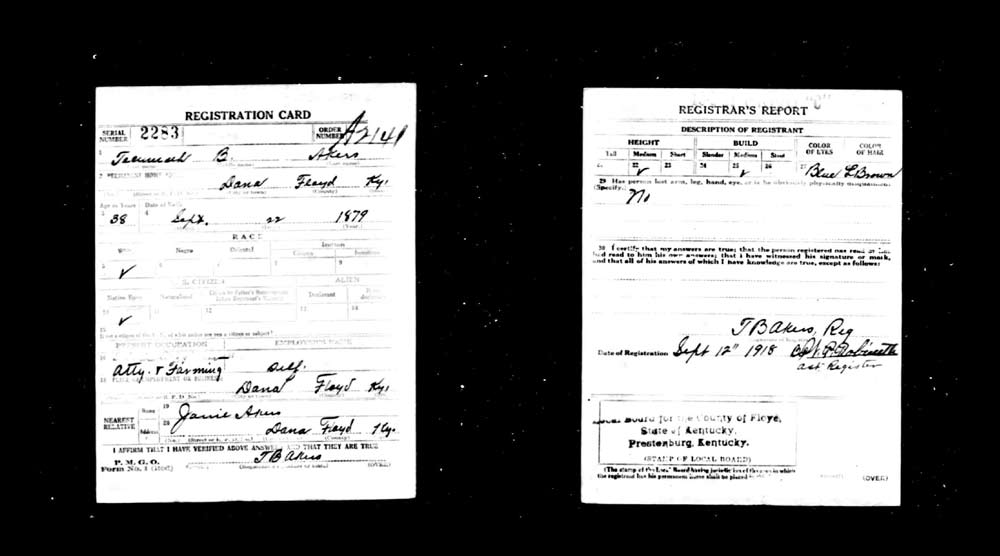 REGISTRATION CARD
SERIAL NUMBER 2283 ORDER NUMBER A2141
1 Tecumseh B. Akers
2 PERMANENT HOME
Dana Floyd Ky.
(County)
Age in Years Date of Birth
3 38 4 Sept. 22 1879
(Year.)
RACE
White Negro Oriental Indian
Citizen
5 ✓ 9
U. S. CITIZEN ALIEN
Native Born Naturalized Declarant
10 ✓ 11 12 13 14
15
If not a citizen of the U. S., of what nation are you a citizen or subject?
PRESENT OCCUPATION EMPLOYER'S NAME
Atty. & Farming Self.
18 PLACE OF EMPLOYMENT OR BUSINESS
Dana Floyd Ky.
NEAREST RELATIVE Name 19 Janie Akers
Address 20 Dana Floyd Ky.
I AFFIRM THAT I HAVE VERIFIED ABOVE ANSWERS AND THAT THEY ARE TRUE
P. M. G. O.
Form No. 1 (Red) T B Akers (OVER)
REGISTRAR'S REPORT
DESCRIPTION OF REGISTRANT
HEIGHT BUILD COLOR OF EYES COLOR OF HAIR
Tall Medium Short Slender Medium Stout
21 22 ✓ 23 24 25 ✓ 26 27 Blue L Brown
29 Has person lost arm, leg, hand, eye, or is he obviously physically disqualified?
(Specify.) No
30 I certify that my answers are true; that the person registered has read or has
had read to him his own answers; that I have witnessed his signature or mark,
and that all of his answers of which I have knowledge are true, except as follows:
T B Akers, Reg
Date of Registration Sept 12" 1918
ast Register
Local Board for the County of Floyd,
State of Kentucky,
Prestonburg, Kentucky.
(STAMP OF LOCAL BOARD)
(The stamp of the Local Board having jurisdiction of the area in which
the registrant has his permanent home shall be placed in
(OVER)